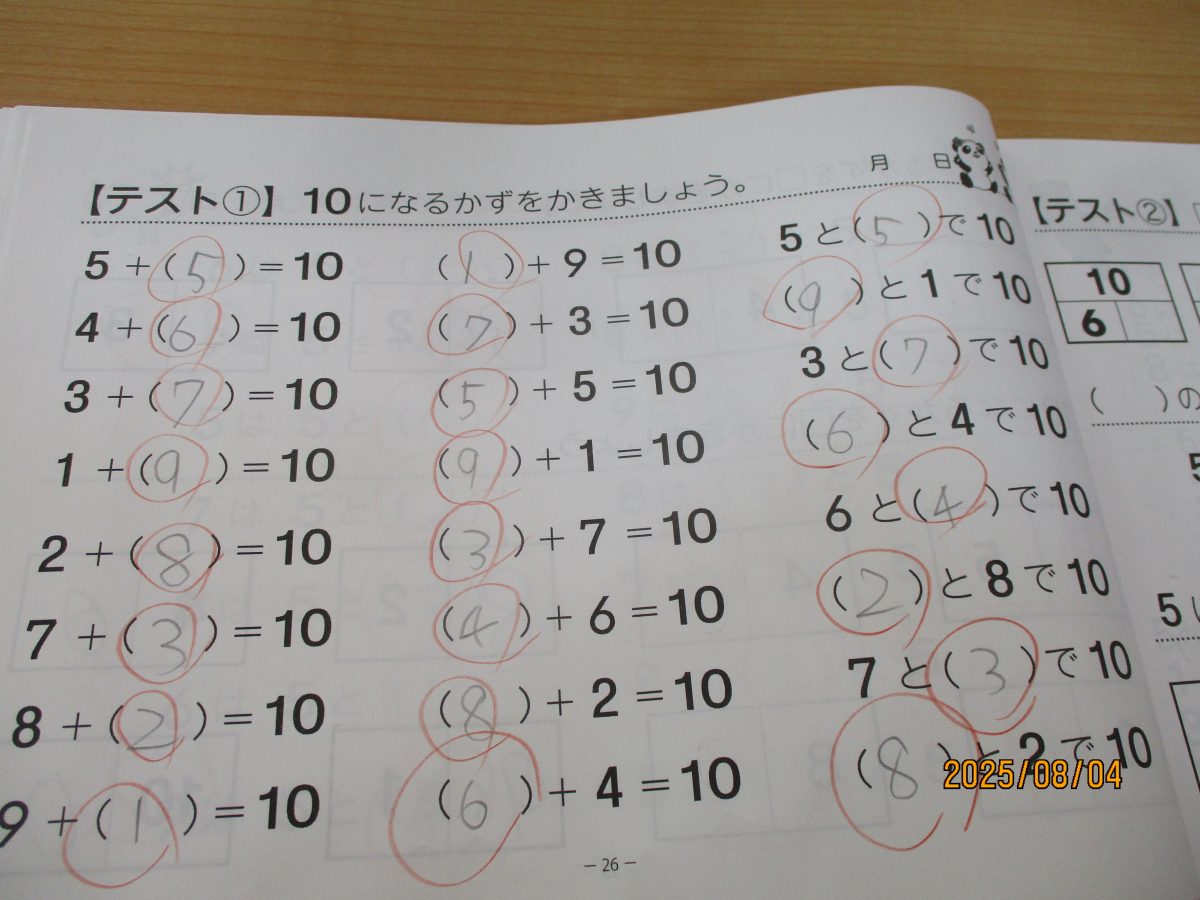 月 日
【テスト①】 10になるかずをかきましょう。
5+(5)=10
4+(6)=10
3+(7)=10
1+(9)=10
2+(8)=10
7+(3)=10
8+(2)=10
9+(1)=10
(1)+9=10
(7)+3=10
(5)+5=10
(9)+1=10
(3)+7=10
(4)+6=10
(8)+2=10
(6)+4=10
5と(5)で10
(9)と1で10
3と(7)で10
(6)と4で10
6と(4)で10
(2)と8で10
7と(3)で10
(8)と2で10
-26-
【テスト②】
10
6
( )の
5
5は
2025/08/04